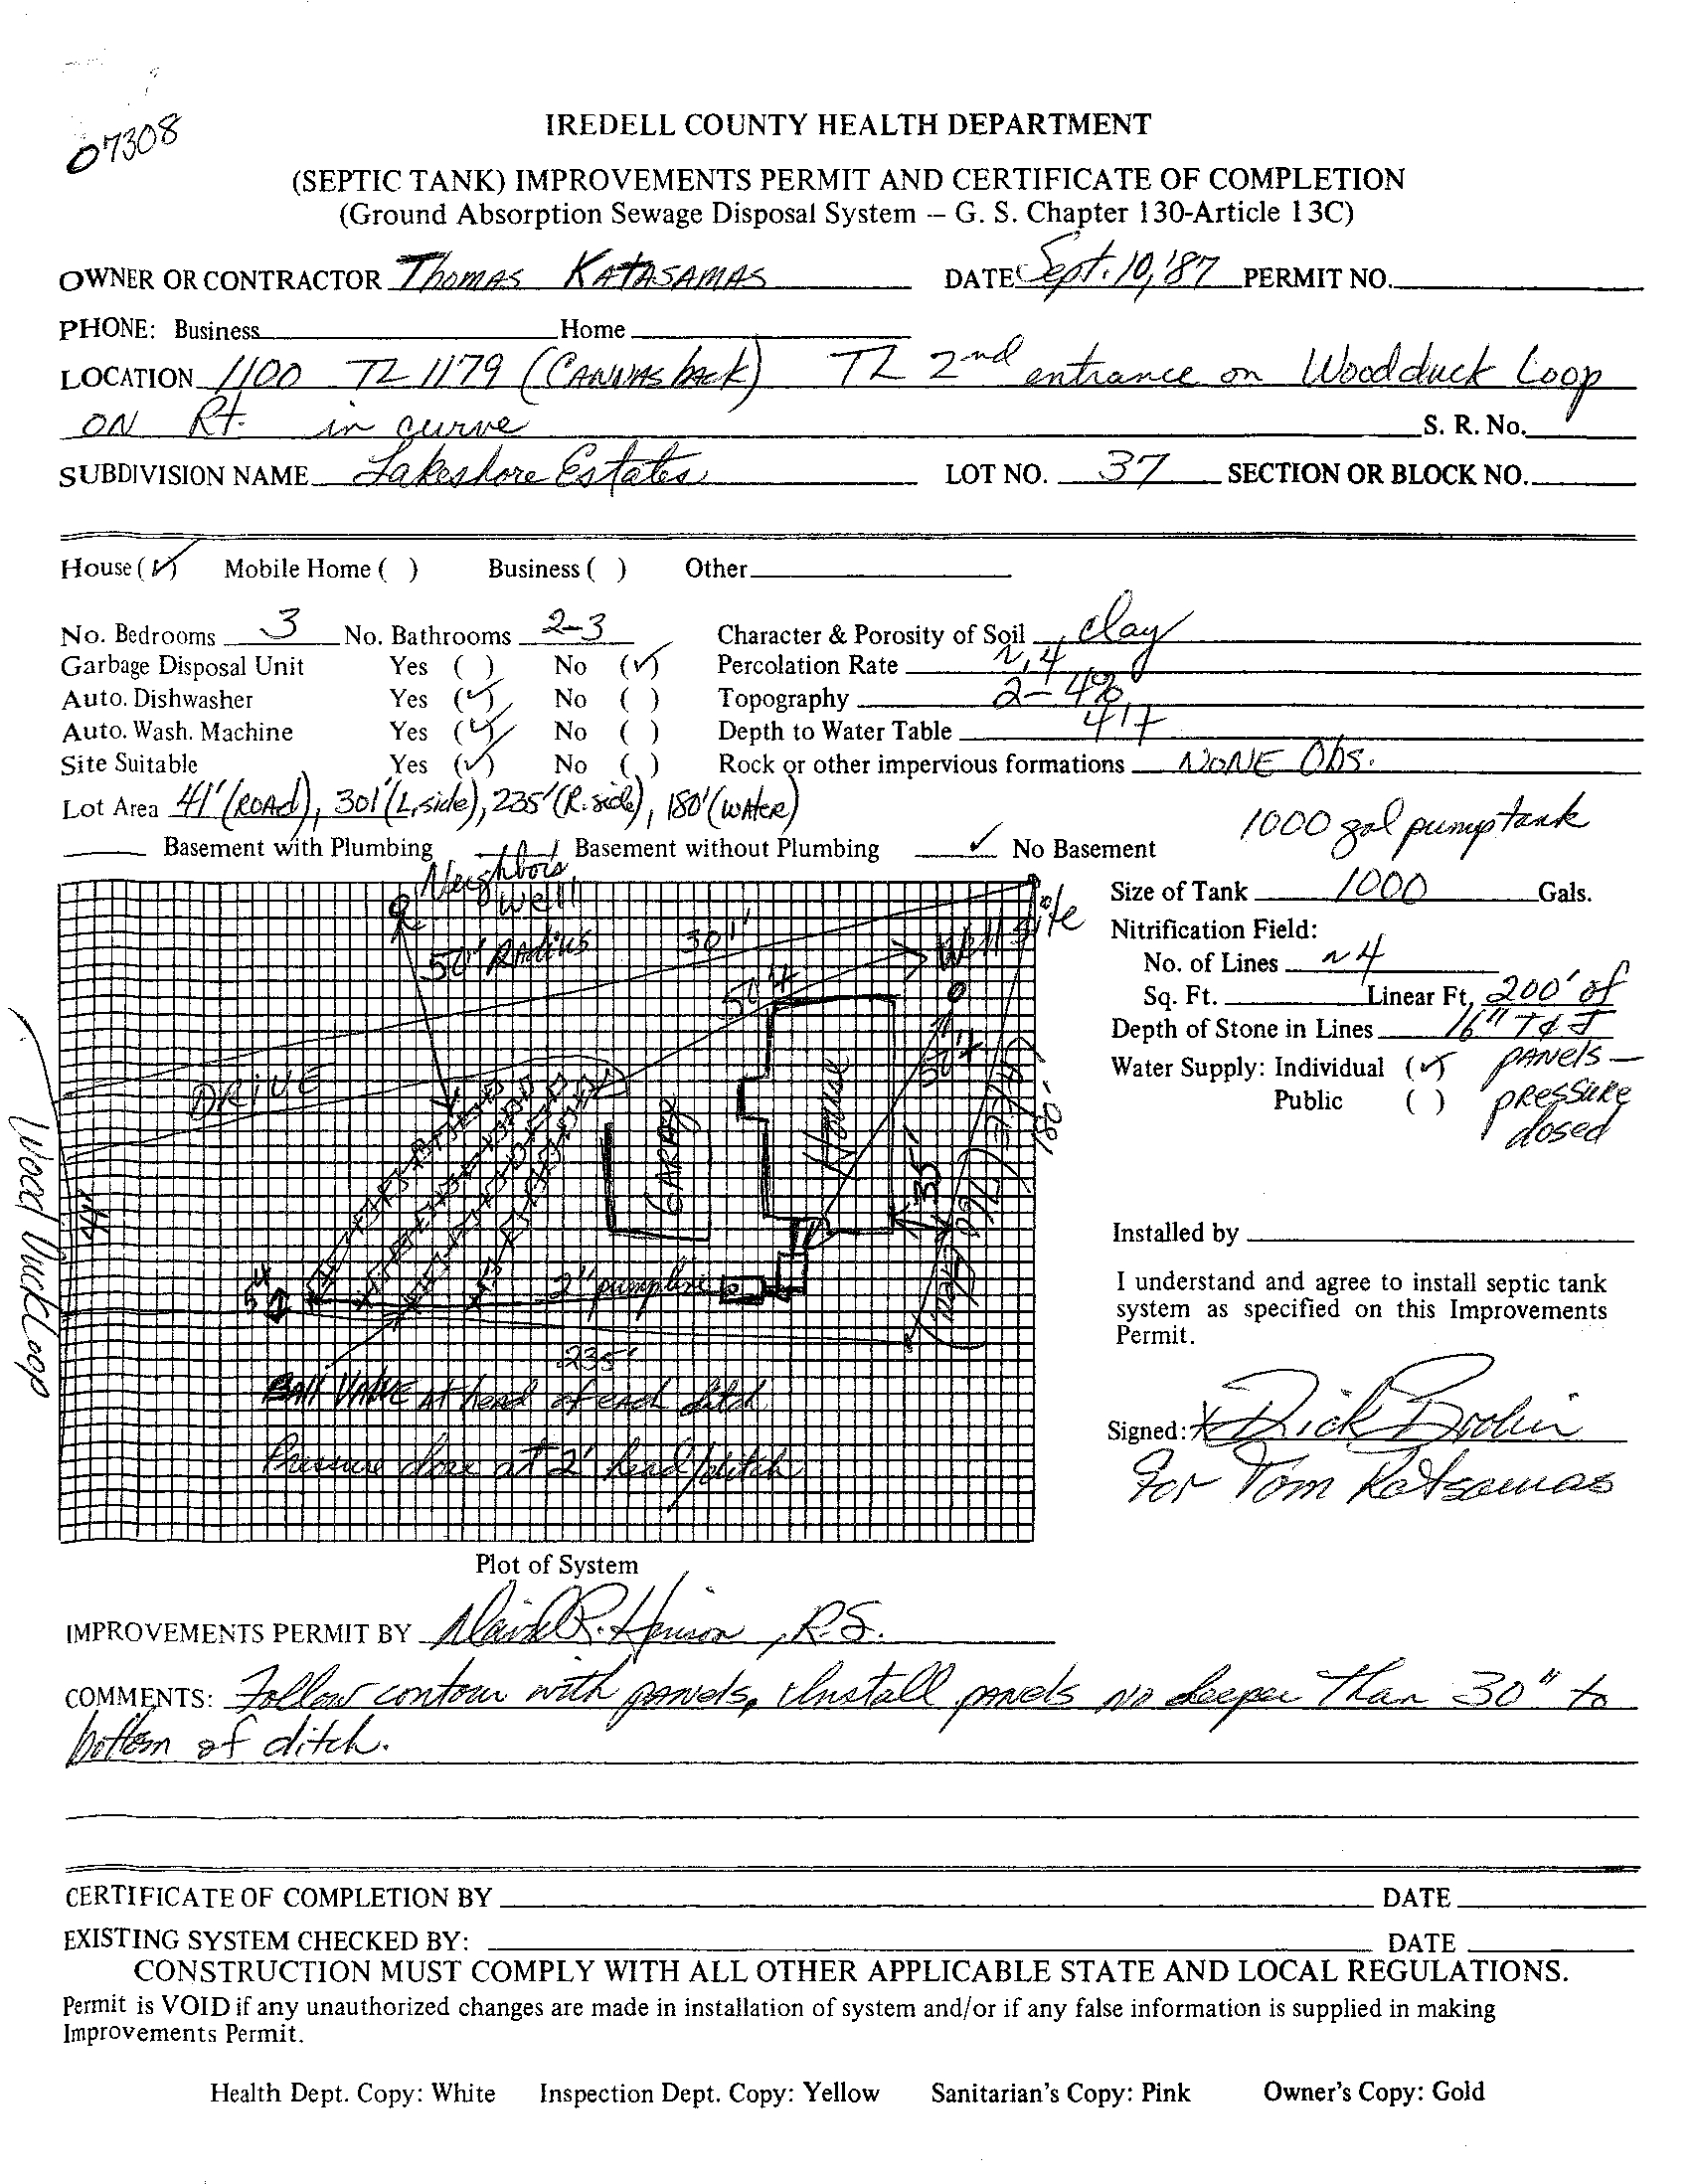 07308
IREDELL COUNTY HEALTH DEPARTMENT
(SEPTIC TANK) IMPROVEMENTS PERMIT AND CERTIFICATE OF COMPLETION
(Ground Absorption Sewage Disposal System – G. S. Chapter 130-Article 13C)
OWNER OR CONTRACTOR Thomas Katasamas DATE Sept. 10, '87 PERMIT NO.
PHONE: Business Home
LOCATION 1100 TL 1179 (Canvasback) TL 2nd entrance on Woodduck Loop
ON Rt. in curve S. R. No.
SUBDIVISION NAME Lakeshore Estates LOT NO. 37 SECTION OR BLOCK NO.
House (✓) Mobile Home ( ) Business ( ) Other
No. Bedrooms 3 No. Bathrooms 2-3 Character & Porosity of Soil clay
Garbage Disposal Unit Yes ( ) No (✓) Percolation Rate ~.4
Auto. Dishwasher Yes (✓) No ( ) Topography 2-4%
Auto. Wash. Machine Yes (✓) No ( ) Depth to Water Table
Site Suitable Yes (✓) No ( ) Rock or other impervious formations NONE Obs.
Lot Area 41' (ROAD), 301' (L. side), 235' (R. side), 180' (WAteR)
1000 gal pump tank
Basement with Plumbing Basement without Plumbing ✓ No Basement
Neighbors
well
50' RAdius
301'
Well site
50'+
50'+
DRIVE
GARAGE
House
35'
180'
LAKE
760
Wood Duck Loop
2" pump line
235'
BAll VAlVE At head of each ditch
Pressure dose at 2' head/ditch
Size of Tank 1000 Gals.
Nitrification Field:
No. of Lines ~4
Sq. Ft. Linear Ft. 200' of
Depth of Stone in Lines 16" T&J
Water Supply: Individual (✓) PANels –
Public ( ) pRessuRe
dosed
Installed by
I understand and agree to install septic tank
system as specified on this Improvements
Permit.
Signed: x Dick
For Tom Katsamas
Plot of System
IMPROVEMENTS PERMIT BY R.S.
COMMENTS: Follow contour with panels, Install panels no deeper than 30" to
bottom of ditch.
CERTIFICATE OF COMPLETION BY DATE
EXISTING SYSTEM CHECKED BY: DATE
CONSTRUCTION MUST COMPLY WITH ALL OTHER APPLICABLE STATE AND LOCAL REGULATIONS.
Permit is VOID if any unauthorized changes are made in installation of system and/or if any false information is supplied in making
Improvements Permit.
Health Dept. Copy: White Inspection Dept. Copy: Yellow Sanitarian's Copy: Pink Owner's Copy: Gold